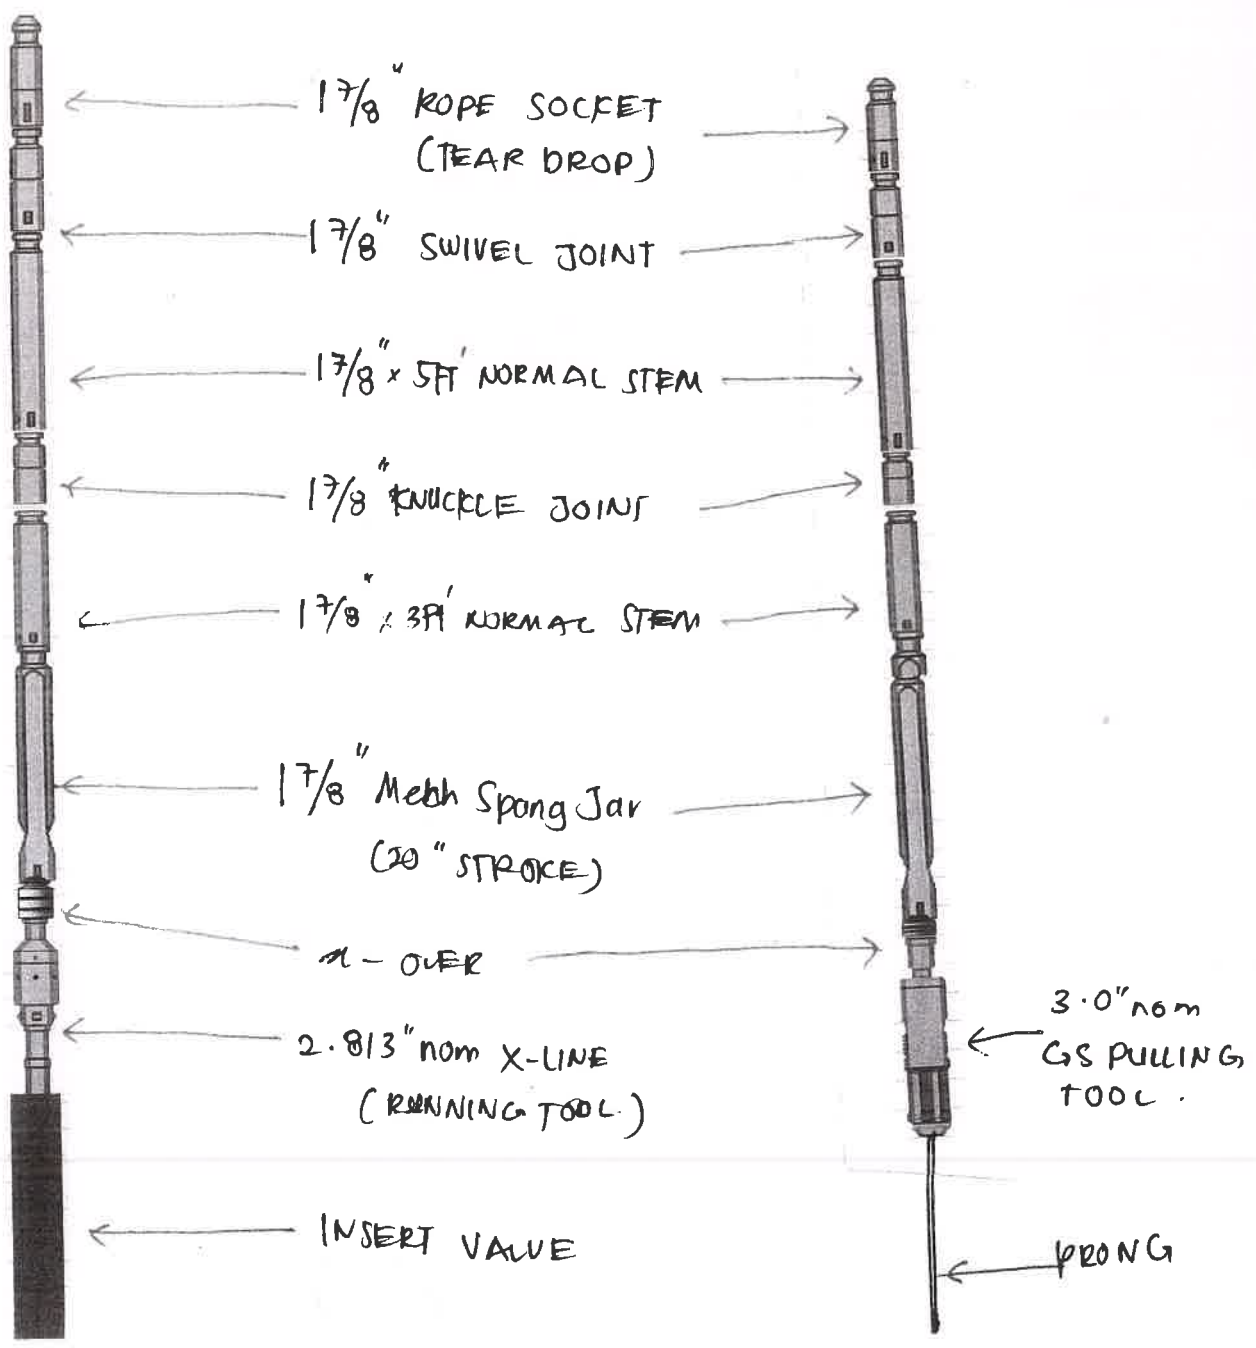 1 7/8" ROPE SOCKET
(TEAR DROP)
1 7/8" SWIVEL JOINT
1 7/8" x 5FT' NORMAL STEM
1 7/8" KNUCKLE JOINT
1 7/8" x 3FT' NORMAL STEM
1 7/8" Mech Spang Jar
(20" STROKE)
x-OVER
2.813" nom X-LINE
(RUNNING TOOL.)
3.0" nom
GS PULLING
TOOL.
INSERT VALVE
PRONG